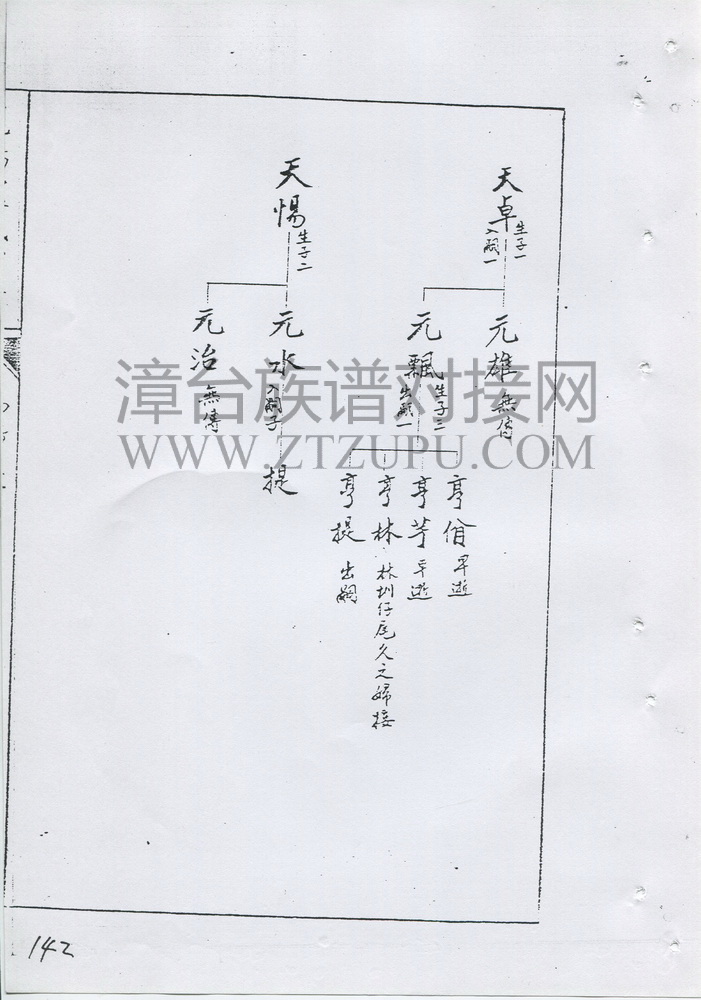 天卓
生子一
入嗣一
元雄 無傳
元飄
生子三
出嗣一
亨佾 早逝
亨芋 早逝
亨林 林圳仔尾久之婦接
亨提 出嗣
天惕
生子二
元水 入嗣子
提
元治 無傳
漳台族谱对接网
WWW.ZTZUPU.COM
142